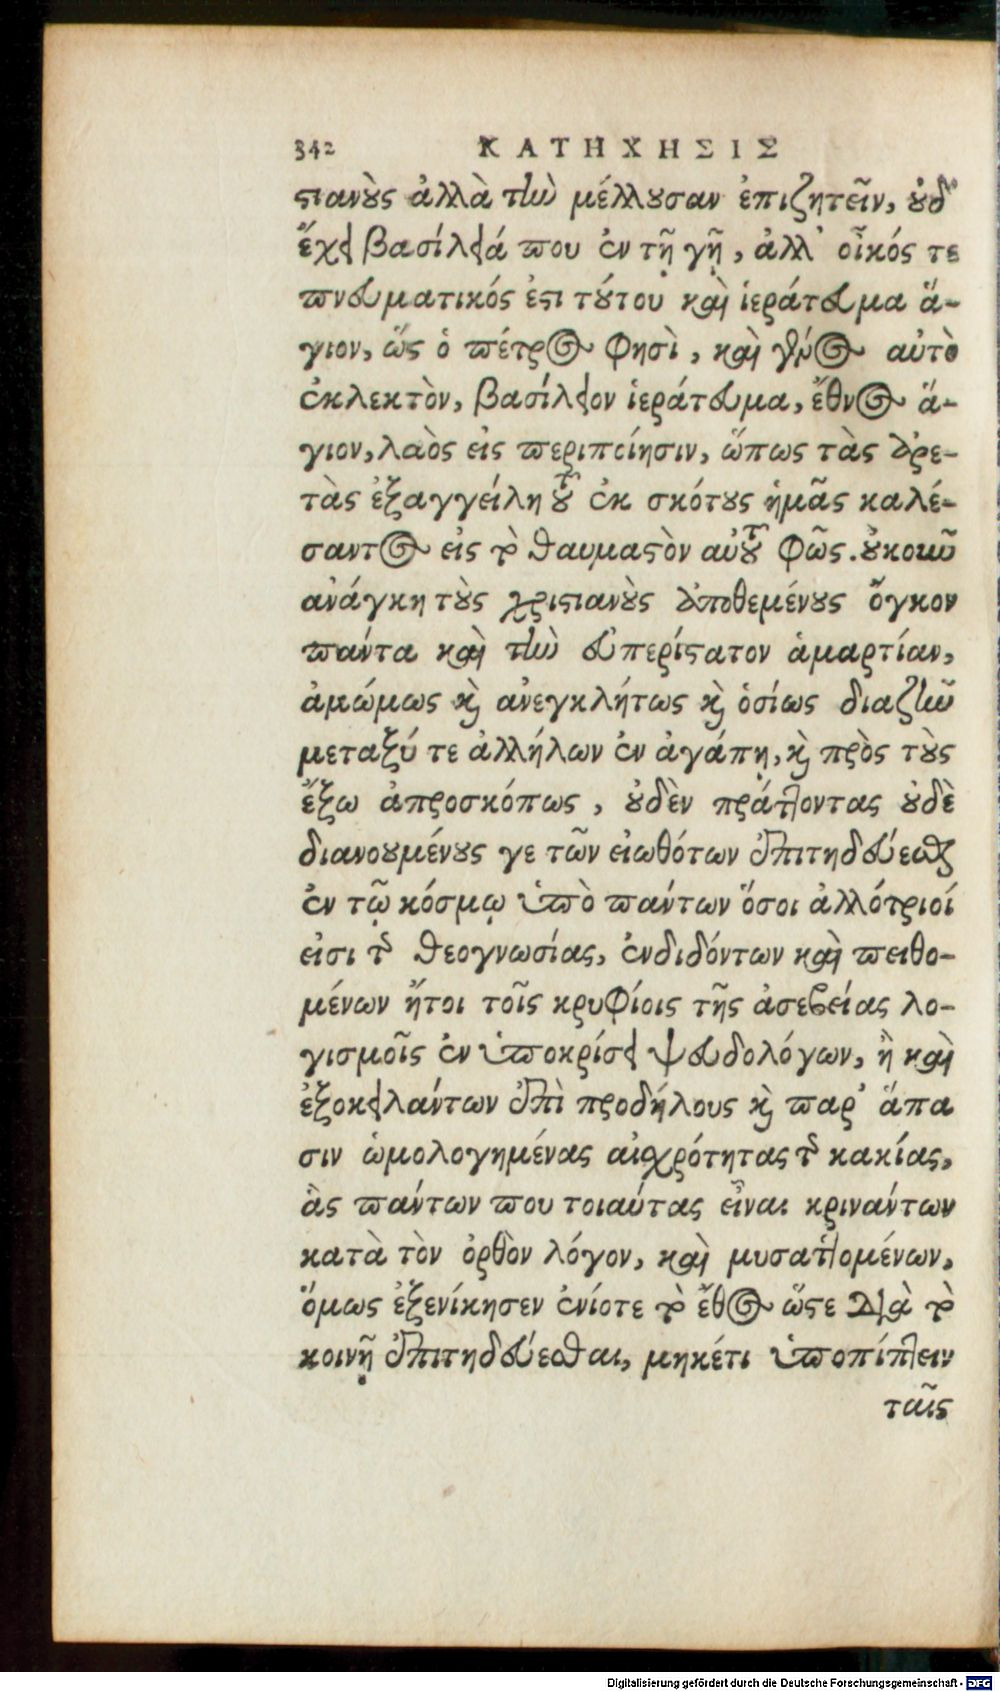 342 ΚΑΤΗΧΗΣΙΣ
στιανοὺς ἀλλὰ τὴν μέλλουσαν ἐπιζητεῖν, οὐδ᾽
ἔχει βασίλειά που ἐν τῇ γῇ, ἀλλ᾽ οἶκός τε
πνευματικός ἐστι τούτου καὶ ἱεράτευμα ἅ-
γιον, ὥς ὁ πέτρος φησὶ, καὶ γένος αὐτὸ
ἐκλεκτὸν, βασίλειον ἱεράτευμα, ἔθνος ἅ-
γιον, λαὸς εἰς περιποίησιν, ὥπως τὰς ἀρε-
τὰς ἐξαγγείλῃ τοῦ ἐκ σκότους ἡμᾶς καλέ-
σαντος εἰς τὸ θαυμαστὸν αὐτοῦ φῶς. οὐκοιοῦ
ἀνάγκη τοὺς χριστιανοὺς ἀποθεμένους ὄγκον
πάντα καὶ τὴν εὐπερίστατον ἁμαρτίαν,
ἀμώμως καὶ ἀνεγκλήτως καὶ ὁσίως διαζῆν
μεταξύ τε ἀλλήλων ἐν ἀγάπῃ, καὶ πρὸς τοὺς
ἔξω ἀπροσκόπως, οὐδὲν πράττοντας οὐδὲ
διανουμένους γε τῶν εἰωθότων ἐπιτηδεύεσθαι
ἐν τῷ κόσμῳ ὑπὸ πάντων ὅσοι ἀλλότριοί
εἰσι τῆς θεογνωσίας, ἐνδιδόντων καὶ πειθο-
μένων ἤτοι τοῖς κρυφίοις τῆς ἀσεβείας λο-
γισμοῖς ἐν ὑποκρίσει ψευδολόγων, ἢ καὶ
ἐξοκειλάντων ἐπὶ προδήλους καὶ παρ᾽ ἅπα
σιν ὡμολογημένας αἰσχρότητας τῆς κακίας,
ἃς πάντων που τοιαύτας εἶναι κρινάντων
κατὰ τὸν ὀρθὸν λόγον, καὶ μυσαττομένων,
ὅμως ἐξενίκησεν ἐνίοτε τὸ ἔθος ὥστε διὰ τὸ
κοινῇ ἐπιτηδεύεσθαι, μηκέτι ὑποπίπτειν
ταῖς
Digitalisierung gefördert durch die Deutsche Forschungsgemeinschaft - DFG